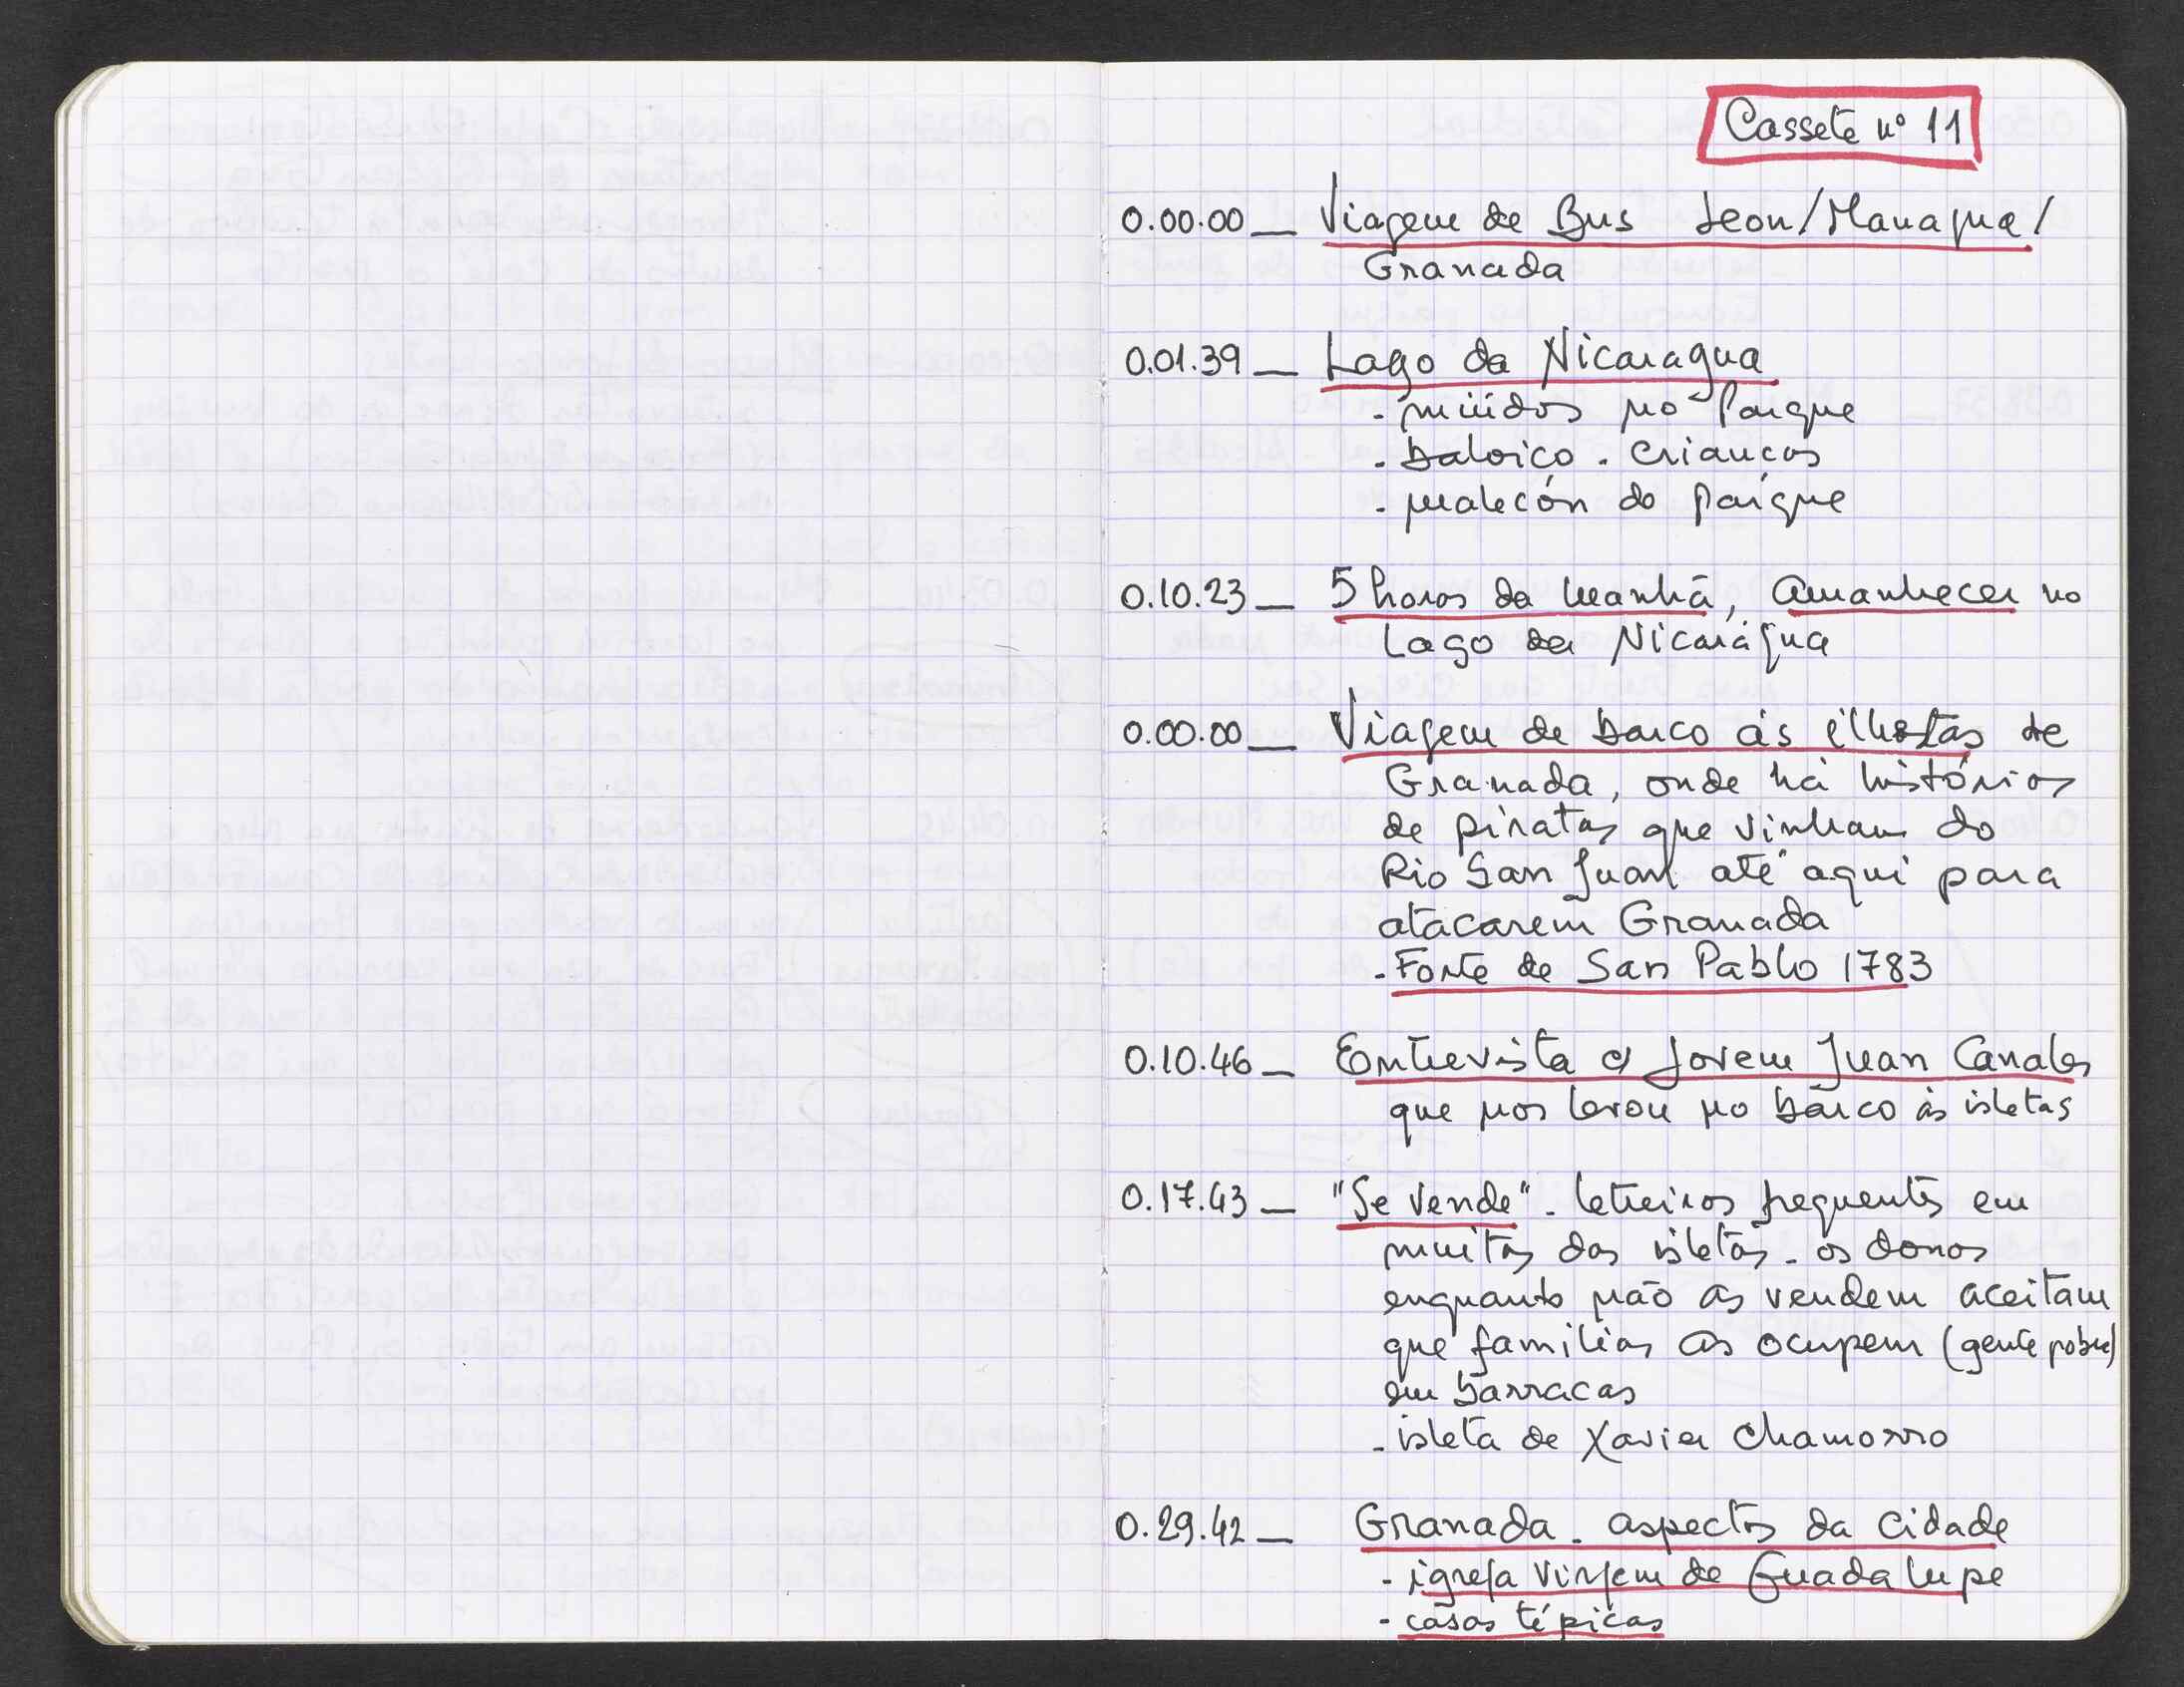 Cassete nº 11
0.00.00 — Viagem de Bus Leon/Managua/
Granada
0.01.39 — Lago da Nicaragua
- miúdos no Parque
- baloiço. crianças
- malecón do parque
0.10.23 — 5 horas da manhã, amanhecer no
Lago da Nicarágua
0.00.00 — Viagem de barco às ilhotas de
Granada, onde há histórias
de piratas que vinham do
Rio San Juan até aqui para
atacarem Granada
- Forte de San Pablo 1783
0.10.46 — Entrevista a jovem Juan Canales
que nos levou no barco às isletas
0.17.43 — "Se vende". letreiros frequentes em
muitas das isletas - os donos
enquanto não as vendem aceitam
que familias as ocupem (gente pobre)
em barracas
- isleta de Xavier Chamorro
0.29.42 — Granada. aspectos da cidade
- igreja Virjem de Guadalupe
- casas típicas